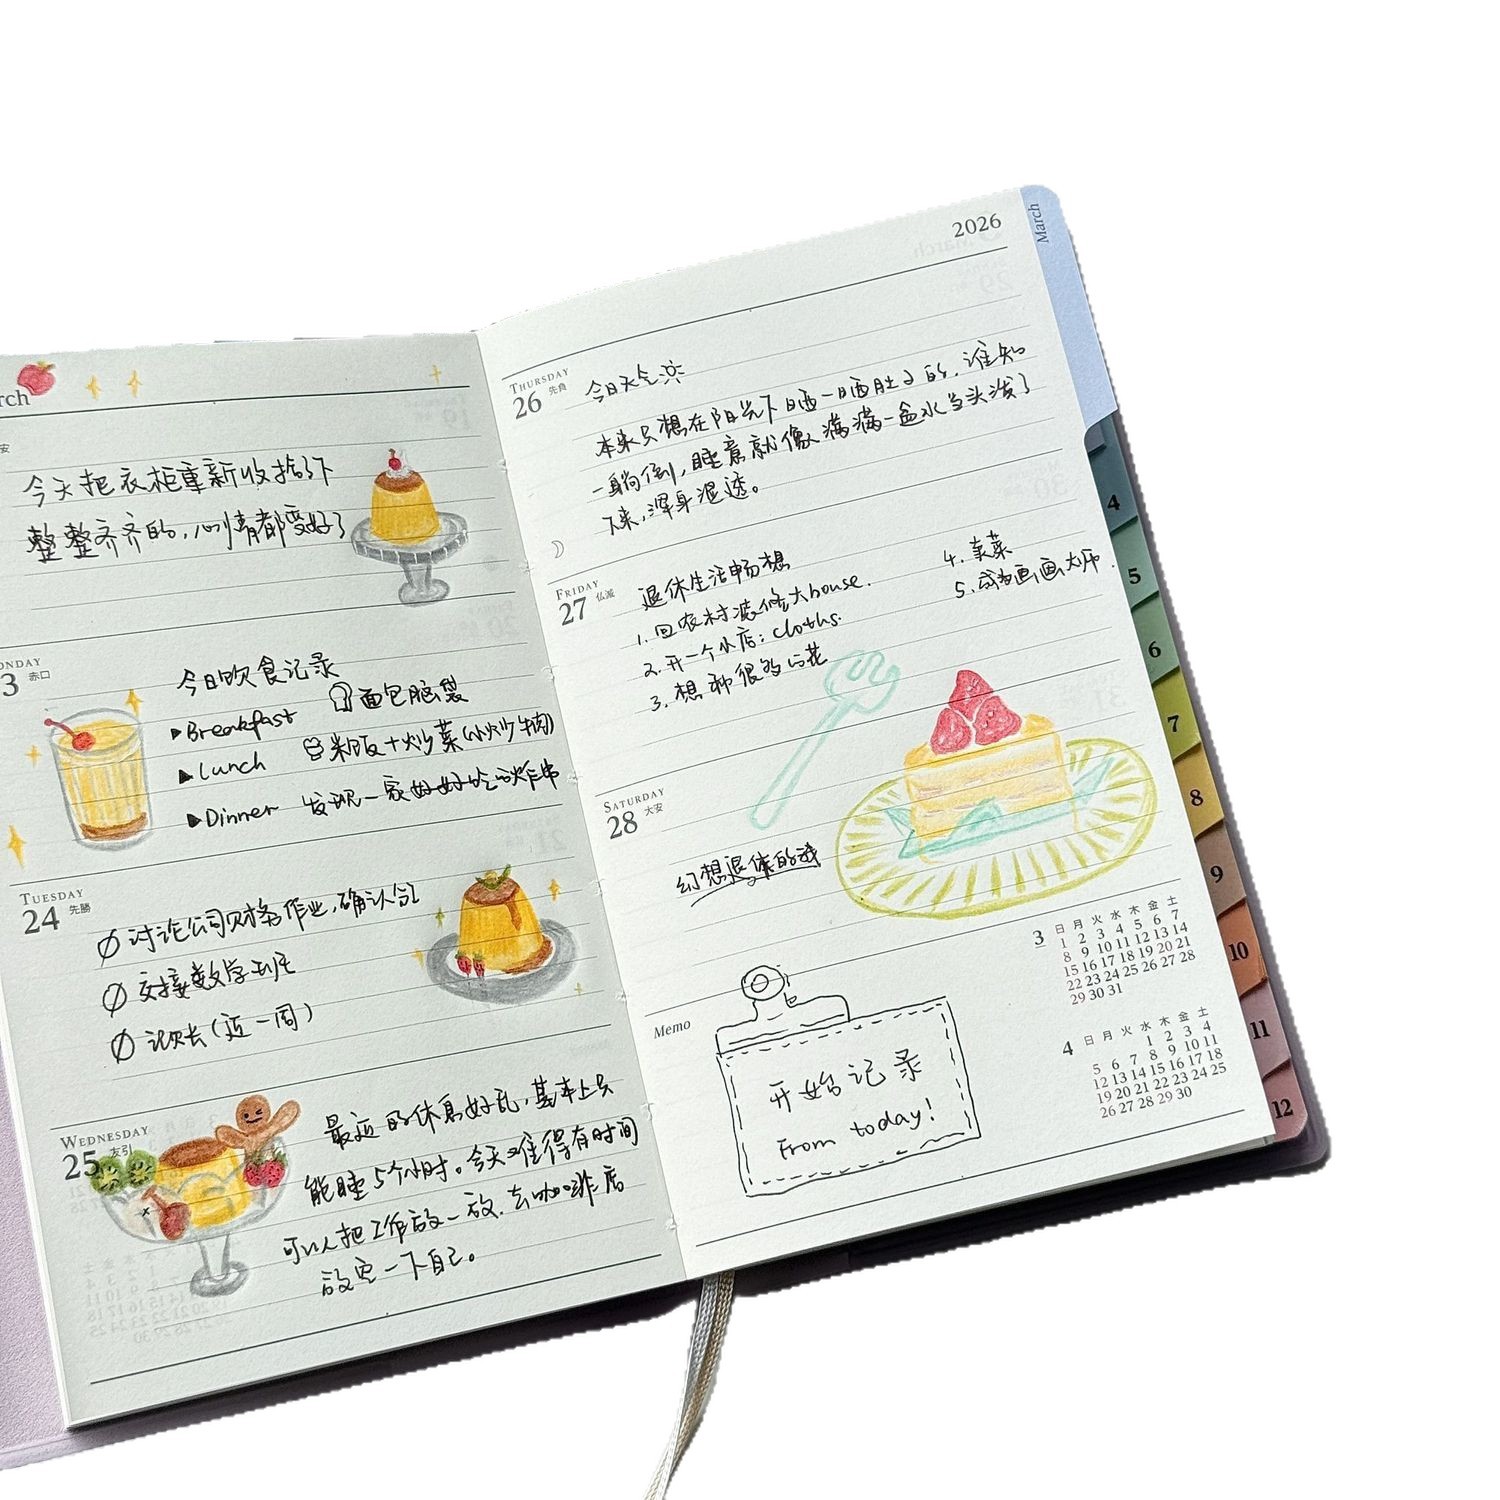 rch
安
今天把衣柜重新收拾了下
整整齐齐的,心情都变好了
ONDAY
3 赤口
今日饮食记录
▶Breakfast 面包脑袋
▶Lunch 米饭+炒菜(小炒牛肉)
▶Dinner 发现一家好好吃的炸串
TUESDAY
24 先勝
讨论公司财务作业,确认分工
交接数学班
记账(近一周)
WEDNESDAY
25 友引
最近的休息好乱,基本上只
能睡5个小时。今天难得有时间
可以把工作放一放.去咖啡店
放空一下自己。
2026
March
THURSDAY
26 先負
今日天气
本来只想在阳光下晒一晒肚子的,谁知
一躺倒,睡意就像满满一盆水当头泼了
下来,浑身湿透。
FRIDAY
27 仏滅
退休生活畅想
1. 回农村装修大house.
2. 开一个小店: cloths.
3. 想种很多的花
4. 卖菜
5. 成为画画大师.
SATURDAY
28 大安
幻想退休的我
Memo
开始记录
From today!
3
日 月 火 水 木 金 土
1 2 3 4 5 6 7
8 9 10 11 12 13 14
15 16 17 18 19 20 21
22 23 24 25 26 27 28
29 30 31
4
日 月 火 水 木 金 土
1 2 3 4
5 6 7 8 9 10 11
12 13 14 15 16 17 18
19 20 21 22 23 24 25
26 27 28 29 30
4
5
6
7
8
9
10
11
12